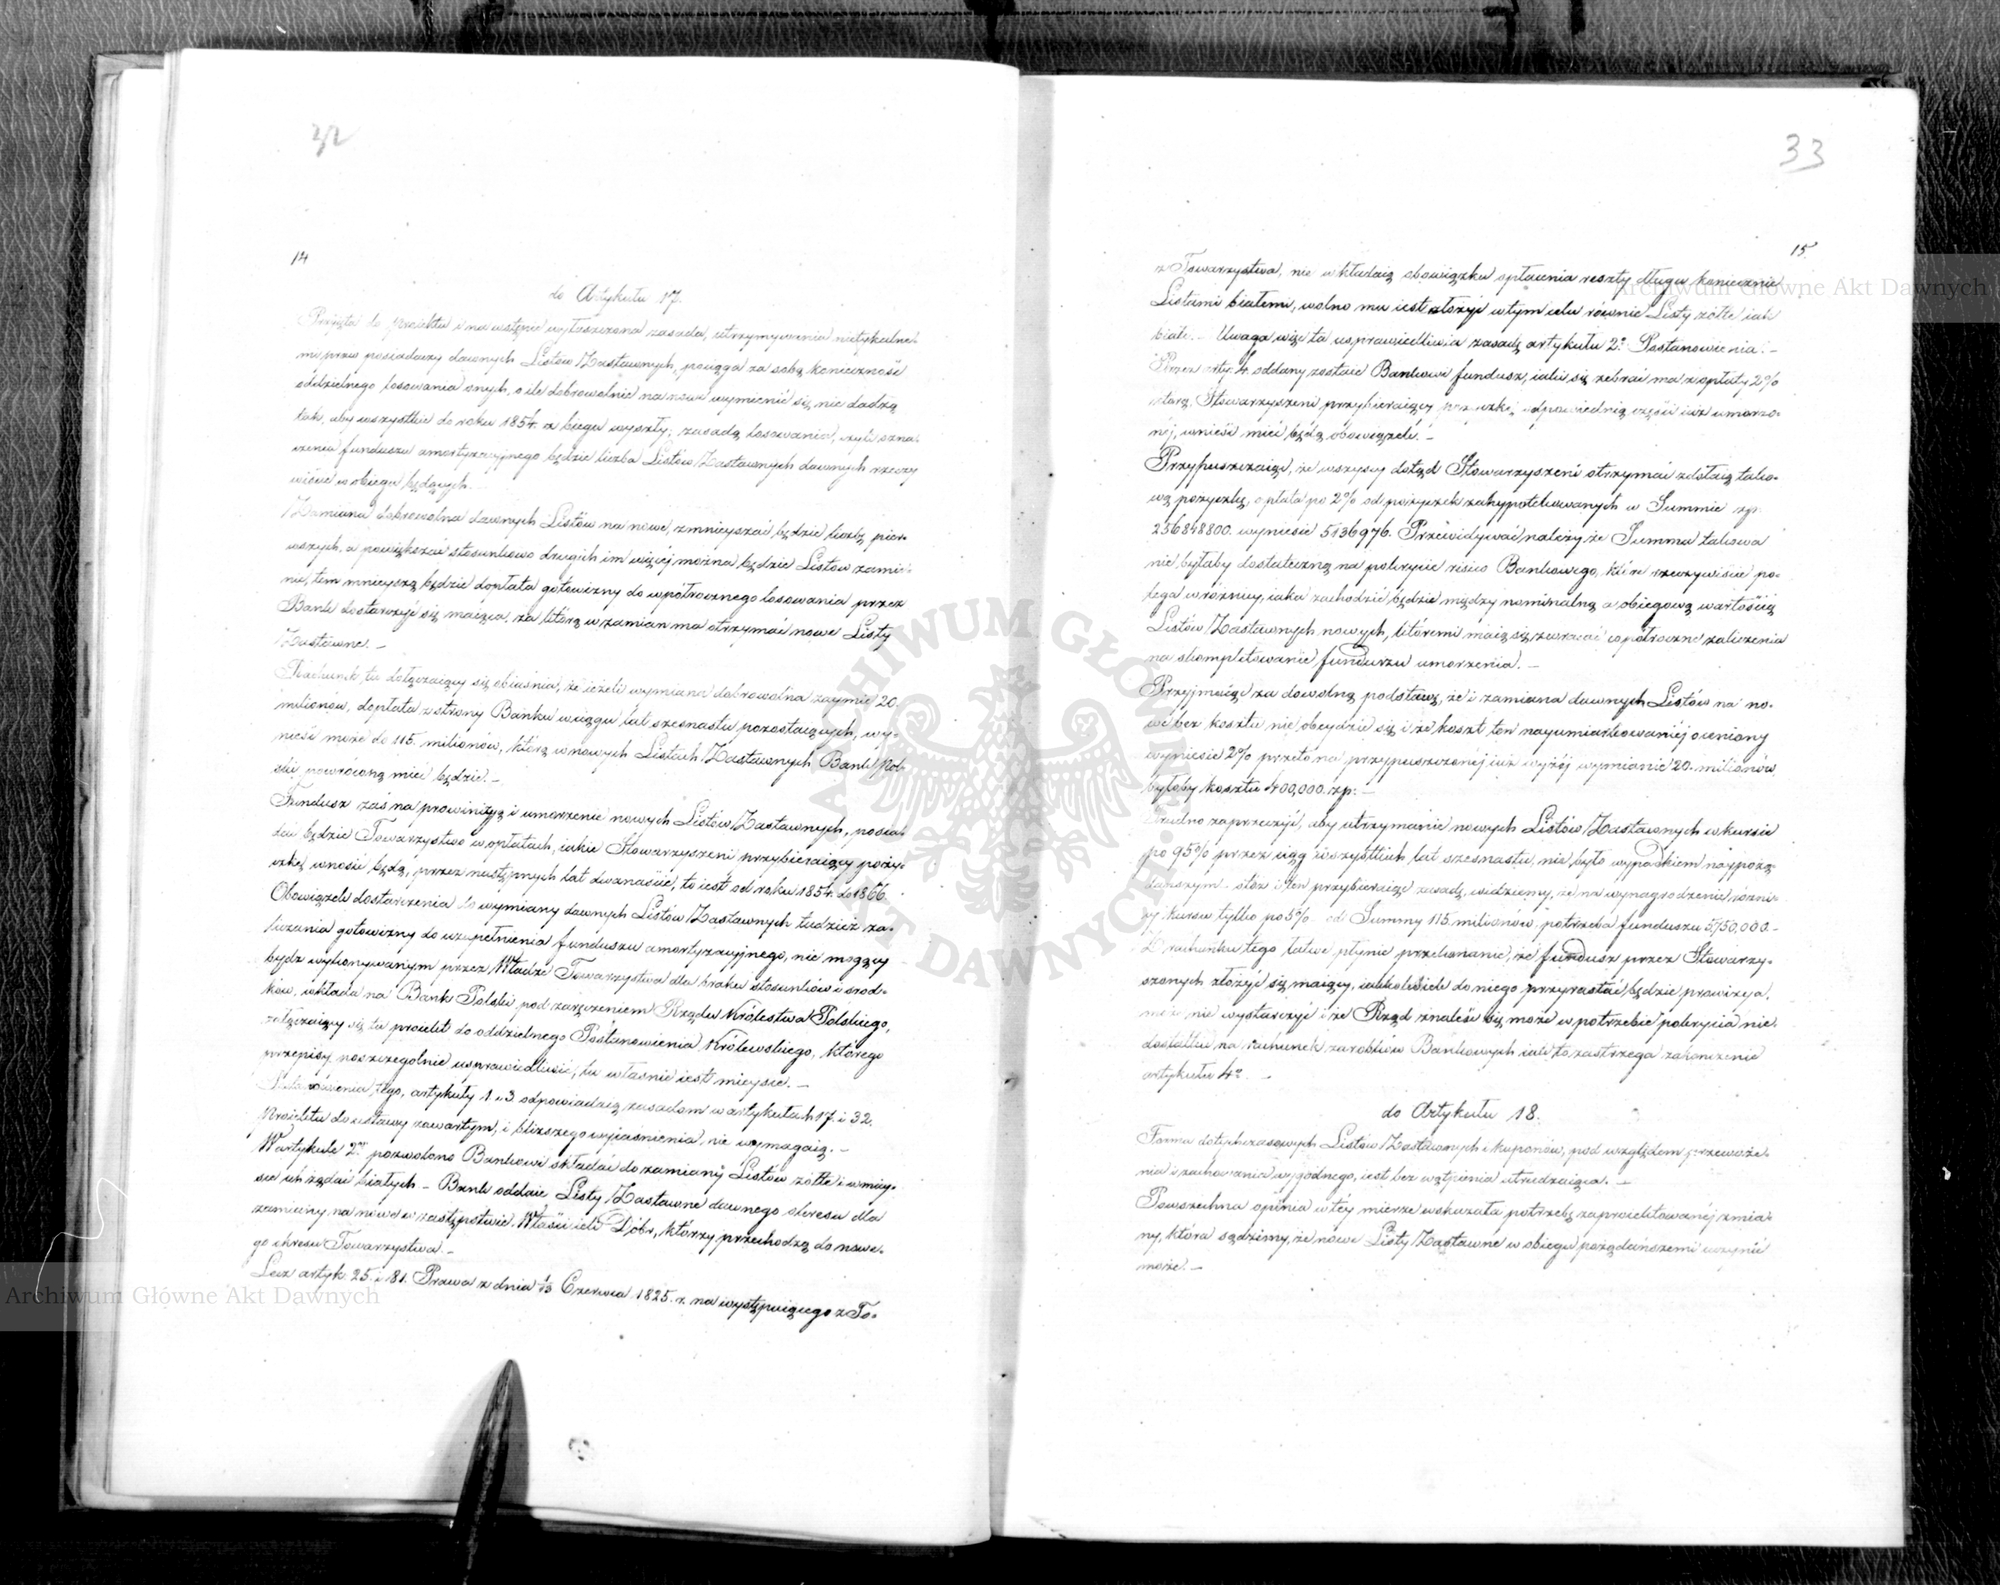 32
14
do Artykułu 17.
Przyięta do projektu i na wstępie wytłuszczona zasada, utrzymywania nietykalne-
mi praw posiadaczy dawnych Listów Zastawnych, pociąga za sobą konieczność
oddzielnego losowania onych, o ile dobrowolnie na nowe wymienić się nie dadzą
tak, aby wszystkie do roku 1854. z biegu wyszły; zasadą losowania, czyli ozna-
czenia funduszu amortyzacyjnego będzie liczba Listów Zastawnych dawnych rzeczy
wiście w obiegu będących.
Zamiana dobrowolna dawnych Listów na nowe, zmnieyszać będzie liczbę pier-
wszych, a powiększać stosunkowo drugich im więcéj można będzie Listów zamie-
nić, tem mnieyszą będzie dopłata gotowizny do wpółrocznego losowania przez
Bank dostarczyć się maiąca, za którą w zamian ma otrzymać nowe Listy
Zastawne. —
Rachunek tu dołączaiący się obiaśnia, że ieżeli wymiana dobrowolna zaymie 20.
milionów, dopłata z strony Banku w ciągu lat szesnastu pozostaiących, wy-
nieść może do 115. milionów, którą w nowych Listach Zastawnych Bank Pol-
ski powróconą mieć będzie. —
Fundusz zaś na prowizyą i umorzenie nowych Listów Zastawnych, posia-
dać będzie Towarzystwo w opłatach, iakie Stowarzyszeni przybieraiący poży-
czkę wnosić będą, przez następnych lat dwanaście, to iest od roku 1854. do 1866.
Obowiązek dostarczenia do wymiany dawnych Listów Zastawnych tudzież za-
liczania gotowizny do uzupełnienia funduszu amortyzacyjnego, nie mogący
bydź wykonywanym przez Władze Towarzystwa dla braku stosunków i środ-
ków, wkłada na Bank Polski, pod zaręczeniem Rządu Królestwa Polskiego,
załączaiący się tu proiekt do oddzielnego Postanowienia Królewskiego, którego
przepisy poszczególnie usprawiedliwić, tu właśnie iest mieysce. —
Postanowienia tego, artykuły 1. i 3. odpowiadaią zasadom w artykułach 17. i 32.
Proiektu do ustawy zawartym, i bliższego wyiaśnienia, nie wymagaią. —
W artykule 2m pozwolono Bankowi składać do zamiany Listów żółte i w miey-
sce ich żądać białych — Bank oddaie Listy Zastawne dawnego okresu dla
zamiany na nowe w zastępstwie Właścicieli Dóbr, którzy przechodzą do nowe-
go okresu Towarzystwa. —
Lecz artyk. 25. i 81. Prawa z dnia 1/13 Czerwca 1825. r. na występuiącego z To-
33
15.
z Towarzystwa, nie wkładaią obowiązku opłacenia reszty długu koniecznie
Listami białemi, wolno mu iest złożyć w tym celu równie Listy żółte iak
białe. — Uwaga więc ta usprawiedliwia zasadę artykułu 2o Postanowienia. —
Przez arty: 4. oddany zostaie Bankowi fundusz, iaki się zebrać ma z opłaty 2%
którą, Stowarzyszeni przybieraiący pożyczkę odpowiednią części iuż umorzo-
néj, wnieść mieć będą obowiązek. —
Przypuszczaiąc, że wszyscy dotąd Stowarzyszeni otrzymać zdołaią tako-
wą pożyczkę, opłata po 2% od pożyczek zahypotekowanych w Summie zp.
256848800. wyniesie 5136976. Przewidywać należy że Summa takowa
nie byłaby dostateczną na pokrycie risico Bankowego, które rzeczywiście po-
lega w różnicy, iaka zachodzić będzie między nominalną a obiegową wartością
Listów Zastawnych nowych, któremi maią się zwracać wpółroczne zaliczenia
na skompletowanie funduszu umorzenia. —
Przyjmuiąc za dowolną podstawę, że i zamiana dawnych Listów na no-
we bez kosztu nie obeydzie się i że koszt ten nayumiarkowaniéj oceniony
wyniesie 2% przeto na przypuszczonéj iuż wyżéj wymianie 20. milionów,
byłoby kosztu 400,000. zp: —
Trudno zaprzeczyć, aby utrzymanie nowych Listów Zastawnych w kursie
po 95% przez ciąg wszystkich lat szesnastu, nie było wypadkiem naypożą-
dańszym — otóż i ten przybieraiąc zasadę, widziemy, że na wynagrodzenie różni-
cy kursu tylko po 5%. od Summy 115 milionów, potrzeba funduszu 5,750,000.—
Z rachunku tego łatwo płynie przekonanie, że fundusz przez Stowarzy-
szonych złożyć się maiący, iakkolwiek do niego przyrastać będzie prowizya,
może nie wystarczyć i że Rząd znaleść się może w potrzebie pokrycia nie-
dostatku na rachunek zarobków Bankowych iak to zastrzega zakończenie
artykułu 4o. —
do Artykułu 18.
Forma dotychczasowych Listów Zastawnych i kuponów, pod względem przewoże-
nia i zachowania wygodnego, iest bez wątpienia utrudzaiąca. —
Powszechna opinia w téy mierze wskazała potrzebę zaproiektowanéj zmia-
ny, która sądzimy, że nowe Listy Zastawne w obiegu pożądańszemi uczynić
może. —
Archiwum Główne Akt Dawnych
Archiwum Główne Akt Dawnych
ARCHIWUM GŁÓWNE AKT DAWNYCH